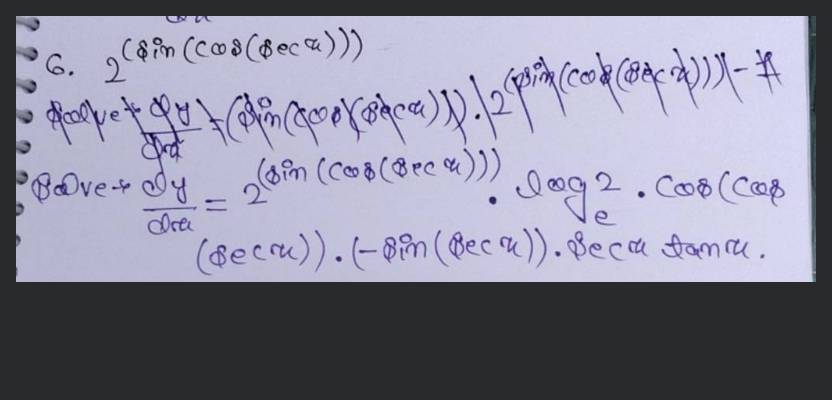 6. 2^(sin(cos(sec x)))
Solve → dy/dx = (sin(cos(sec x))) . 2^(sin(cos(sec x))) - 1
Solve → dy/dx = 2^(sin(cos(sec x))) . log_e 2 . cos(cos
(sec x)) . (-sin(sec x)) . sec x tan x .